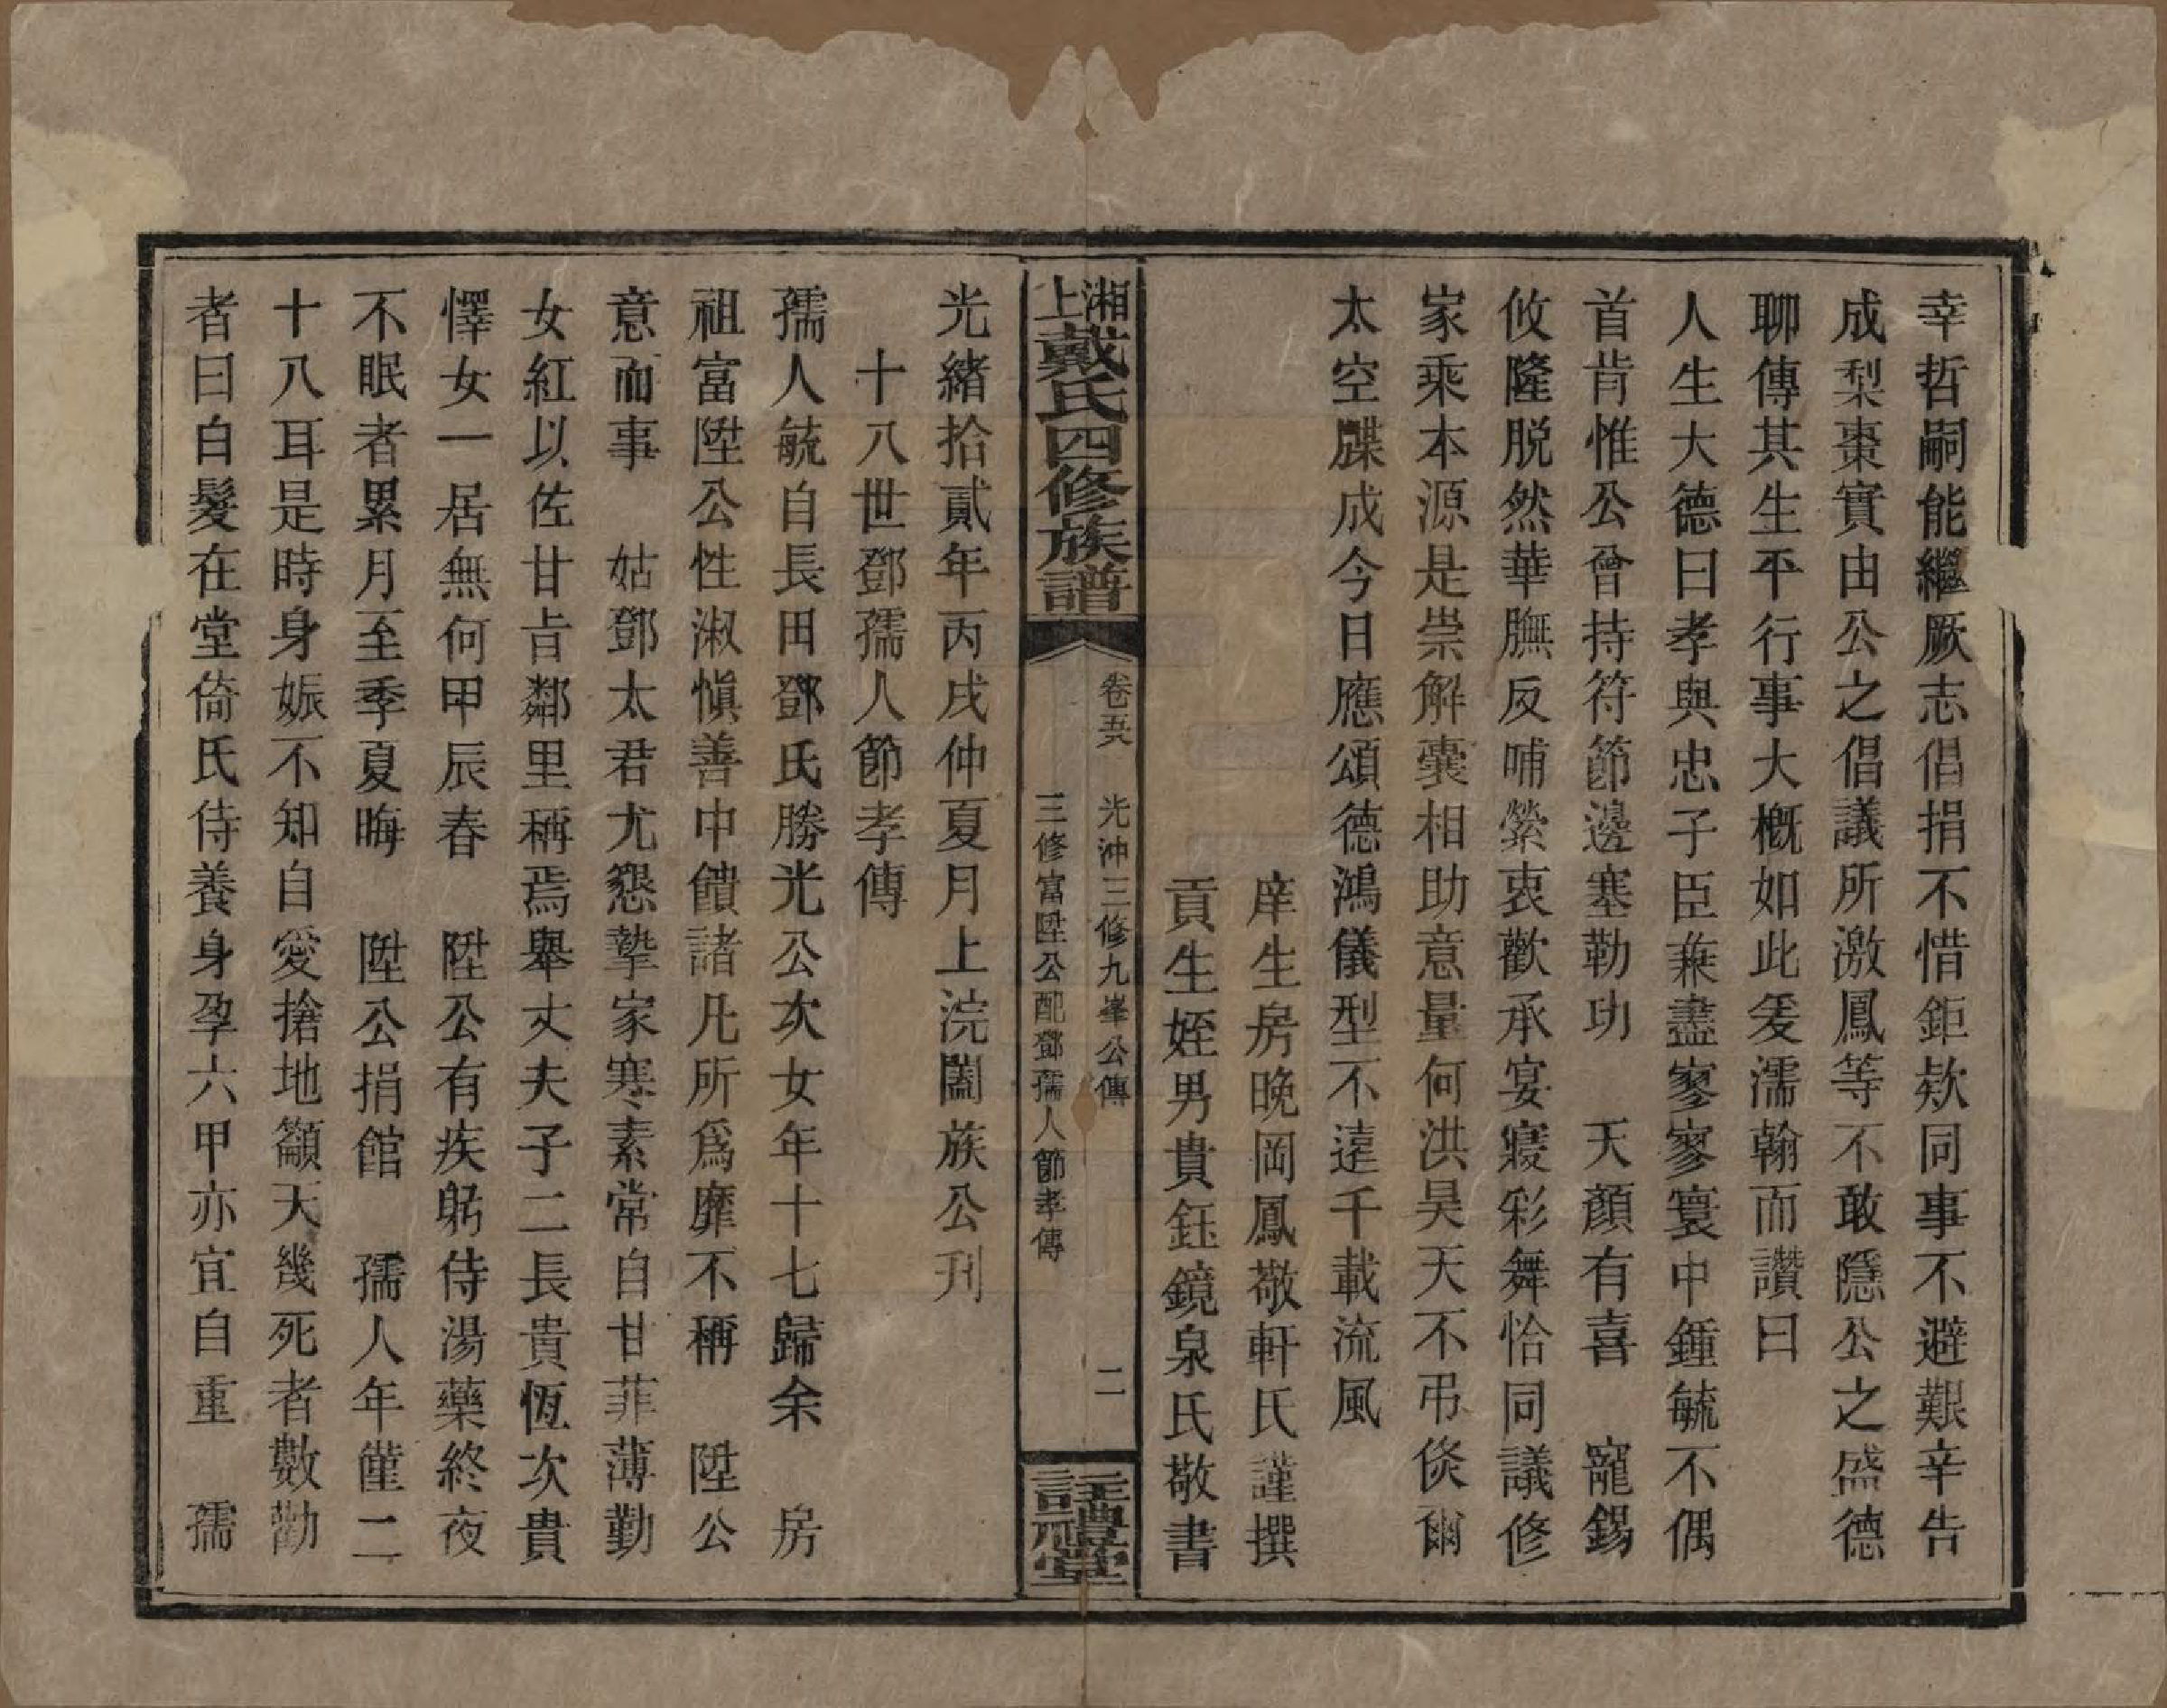 幸哲嗣能繼厥志倡捐不惜鉅欵同事不避艱辛告
成梨棗實由公之倡議所激鳳等不敢隱公之盛德
聊傳其生平行事大概如此爰濡翰而讚曰
人生大德曰孝與忠子臣兼盡寥寥寰中鍾毓不偶
首肯惟公曾持符節邊塞勒功　天顏有喜　寵錫
攸隆脱然華膴反哺縈衷歡承宴寢彩舞恰同議修
家乘本源是崇解囊相助意量何洪昊天不弔倐爾
太空牒成今日應頌德鴻儀型不遠千載流風
庠生房晚岡鳳敬軒氏謹撰
貢生姪男貴鈺鏡泉氏敬書
湘上戴氏四修族譜
卷五　光沖三修九峯公傳　二
三修富陞公配鄧孺人節孝傳
註禮堂
光緒拾貳年丙戌仲夏月上浣闔族公刋
十八世鄧孺人節孝傳
孺人毓自長田鄧氏勝光公次女年十七歸余　房
祖富陞公性淑愼善中饋諸凡所爲靡不稱　陞公
意而事　姑鄧太君尤懇摯家寒素常自甘菲薄勤
女紅以佐甘旨鄰里稱焉舉丈夫子二長貴恆次貴
懌女一居無何甲辰春　陞公有疾躬侍湯藥終夜
不眠者累月至季夏晦　陞公捐館　孺人年僅二
十八耳是時身娠不知自愛搶地籲天幾死者數勸
者曰白髮在堂倚氏侍養身孕六甲亦宜自重　孺